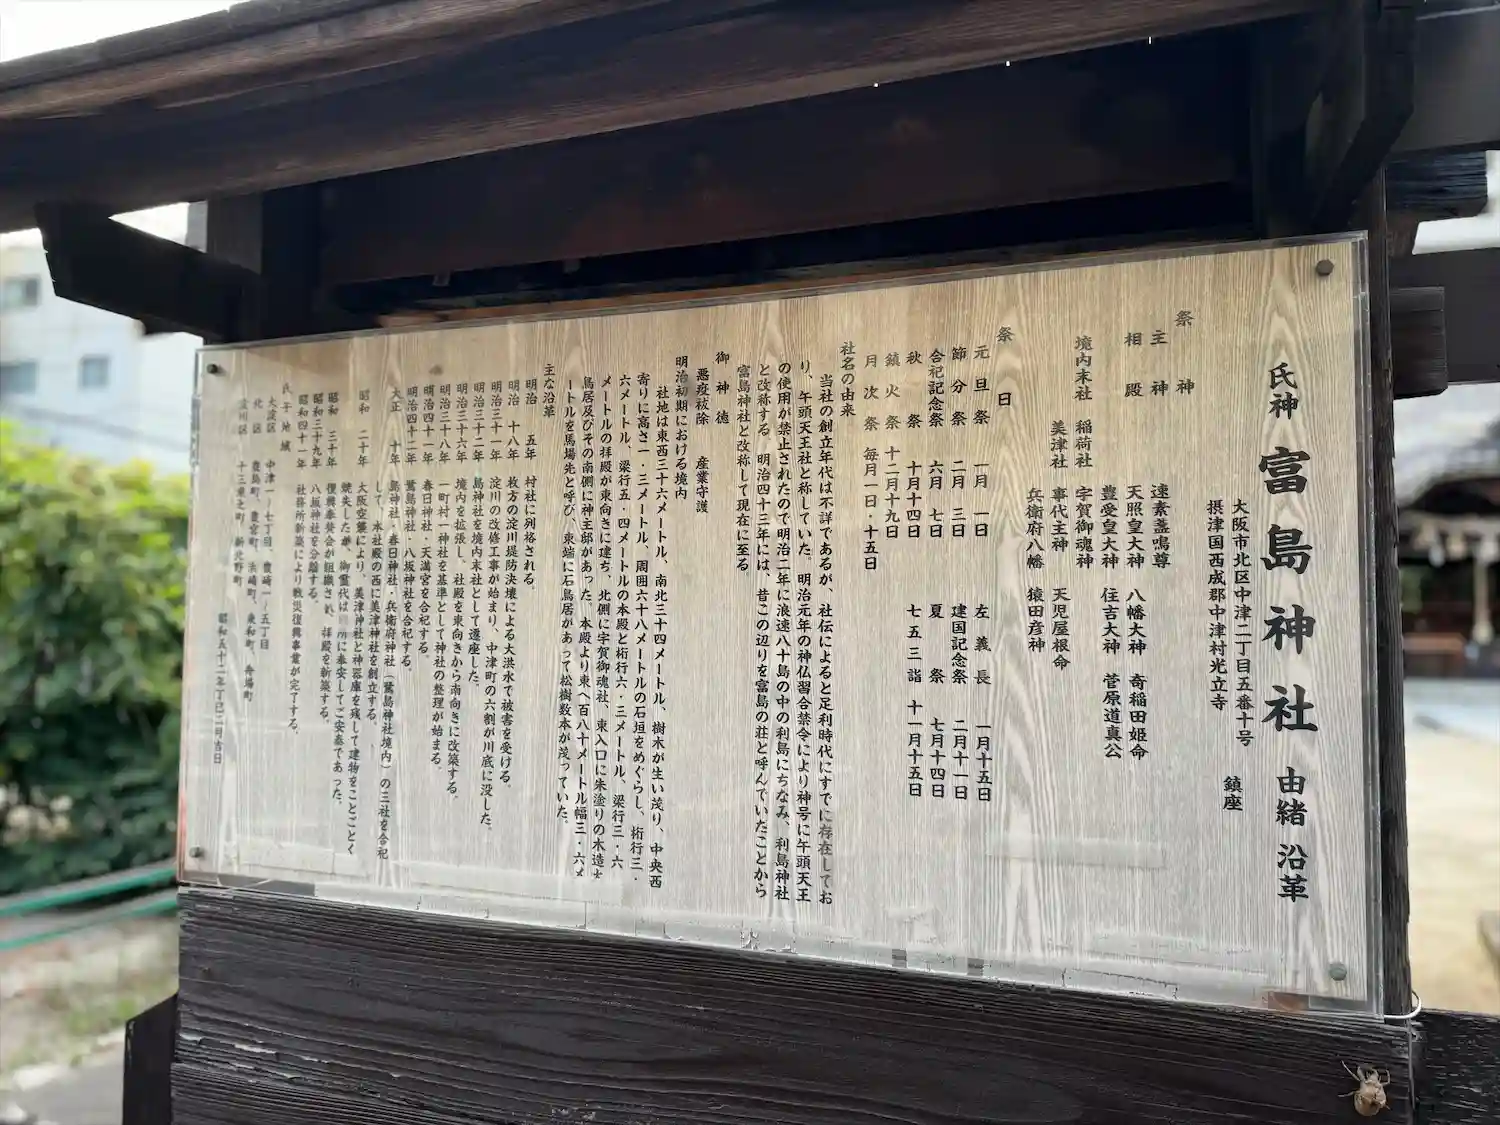 氏神 富島神社 由緒沿革
大阪市北区中津二丁目五番十号
摂津国西成郡中津村光立寺 鎮座
祭神
主神 速素盞鳴尊
相殿 天照皇大神 八幡大神 奇稲田姫命
豊受皇大神 住吉大神 菅原道真公
境内末社 稲荷社 宇賀御魂神
美津社 事代主神 天児屋根命
兵衛府八幡 猿田彦神
祭日
元旦祭 一月一日 左義長 一月十五日
節分祭 二月三日 建国記念祭 二月十一日
合祀記念祭 六月七日 夏祭 七月十四日
秋祭 十月十四日 七五三詣 十一月十五日
鎮火祭 十二月十九日
月次祭 毎月一日・十五日
社名の由来
当社の創立年代は不詳であるが、社伝によると足利時代にすでに存在してお
り、午頭天王社と称していた。明治元年の神仏習合禁令により神号に午頭天王
の使用が禁止されたので明治二年に浪速八十島の中の利島にちなみ、利島神社
と改称する。明治四十三年には、昔この辺りを富島の荘と呼んでいたことから
富島神社と改称して現在に至る。
御神徳
悪疫祓除 産業守護
明治初期における境内
社地は東西三十六メートル、南北三十四メートル、樹木が生い茂り、中央西
寄りに高さ一・三メートル、周囲六十八メートルの石垣をめぐらし、桁行三・
六メートル、梁行五・四メートルの本殿と桁行六・三メートル、梁行三・六
メートルの拝殿が東向きに建ち、北側に宇賀御魂社、東入口に朱塗りの木造大
鳥居及びその南側に神主邸があった。本殿より東へ百八十メートル幅三・六メ
ートルを馬場先と呼び、東端に石鳥居があって松樹数本が茂っていた。
主な沿革
明治 五年 村社に列格される。
明治 十八年 枚方の淀川堤防決壊による大洪水で被害を受ける。
明治三十一年 淀川の改修工事が始まり、中津町の六割が川底に没した。
明治三十二年 島神社を境内末社として遷座した。
明治三十六年 境内を拡張し、社殿を東向きから南向きに改築する。
明治三十八年 一町村一神社を基準として神社の整理が始まる。
明治四十一年 春日神社・天満宮を合祀する。
明治四十二年 鷺島神社・八坂神社を合祀する。
大正 十年 島神社・春日神社・兵衛府神社(鷺島神社境内)の三社を合祀
して、本社殿の西に美津神社を創立する。
昭和 二十年 大阪空襲により、美津神社と神器庫を残して建物をことごとく
焼失したが、御霊代は 所に奉安してご安泰であった。
昭和 三十年 復興奉賛会が組織され、拝殿を新築する。
昭和三十九年 八坂神社を分離する。
昭和四十一年 社務所新築により戦災復興事業が完了する。
氏子地域
大淀区 中津一〜七丁目、豊崎一〜五丁目
北区 豊島町、豊宮町、浜崎町、東和町、舟場町
淀川区 十三東之町、新北野町
昭和五十二年丁巳二月吉日